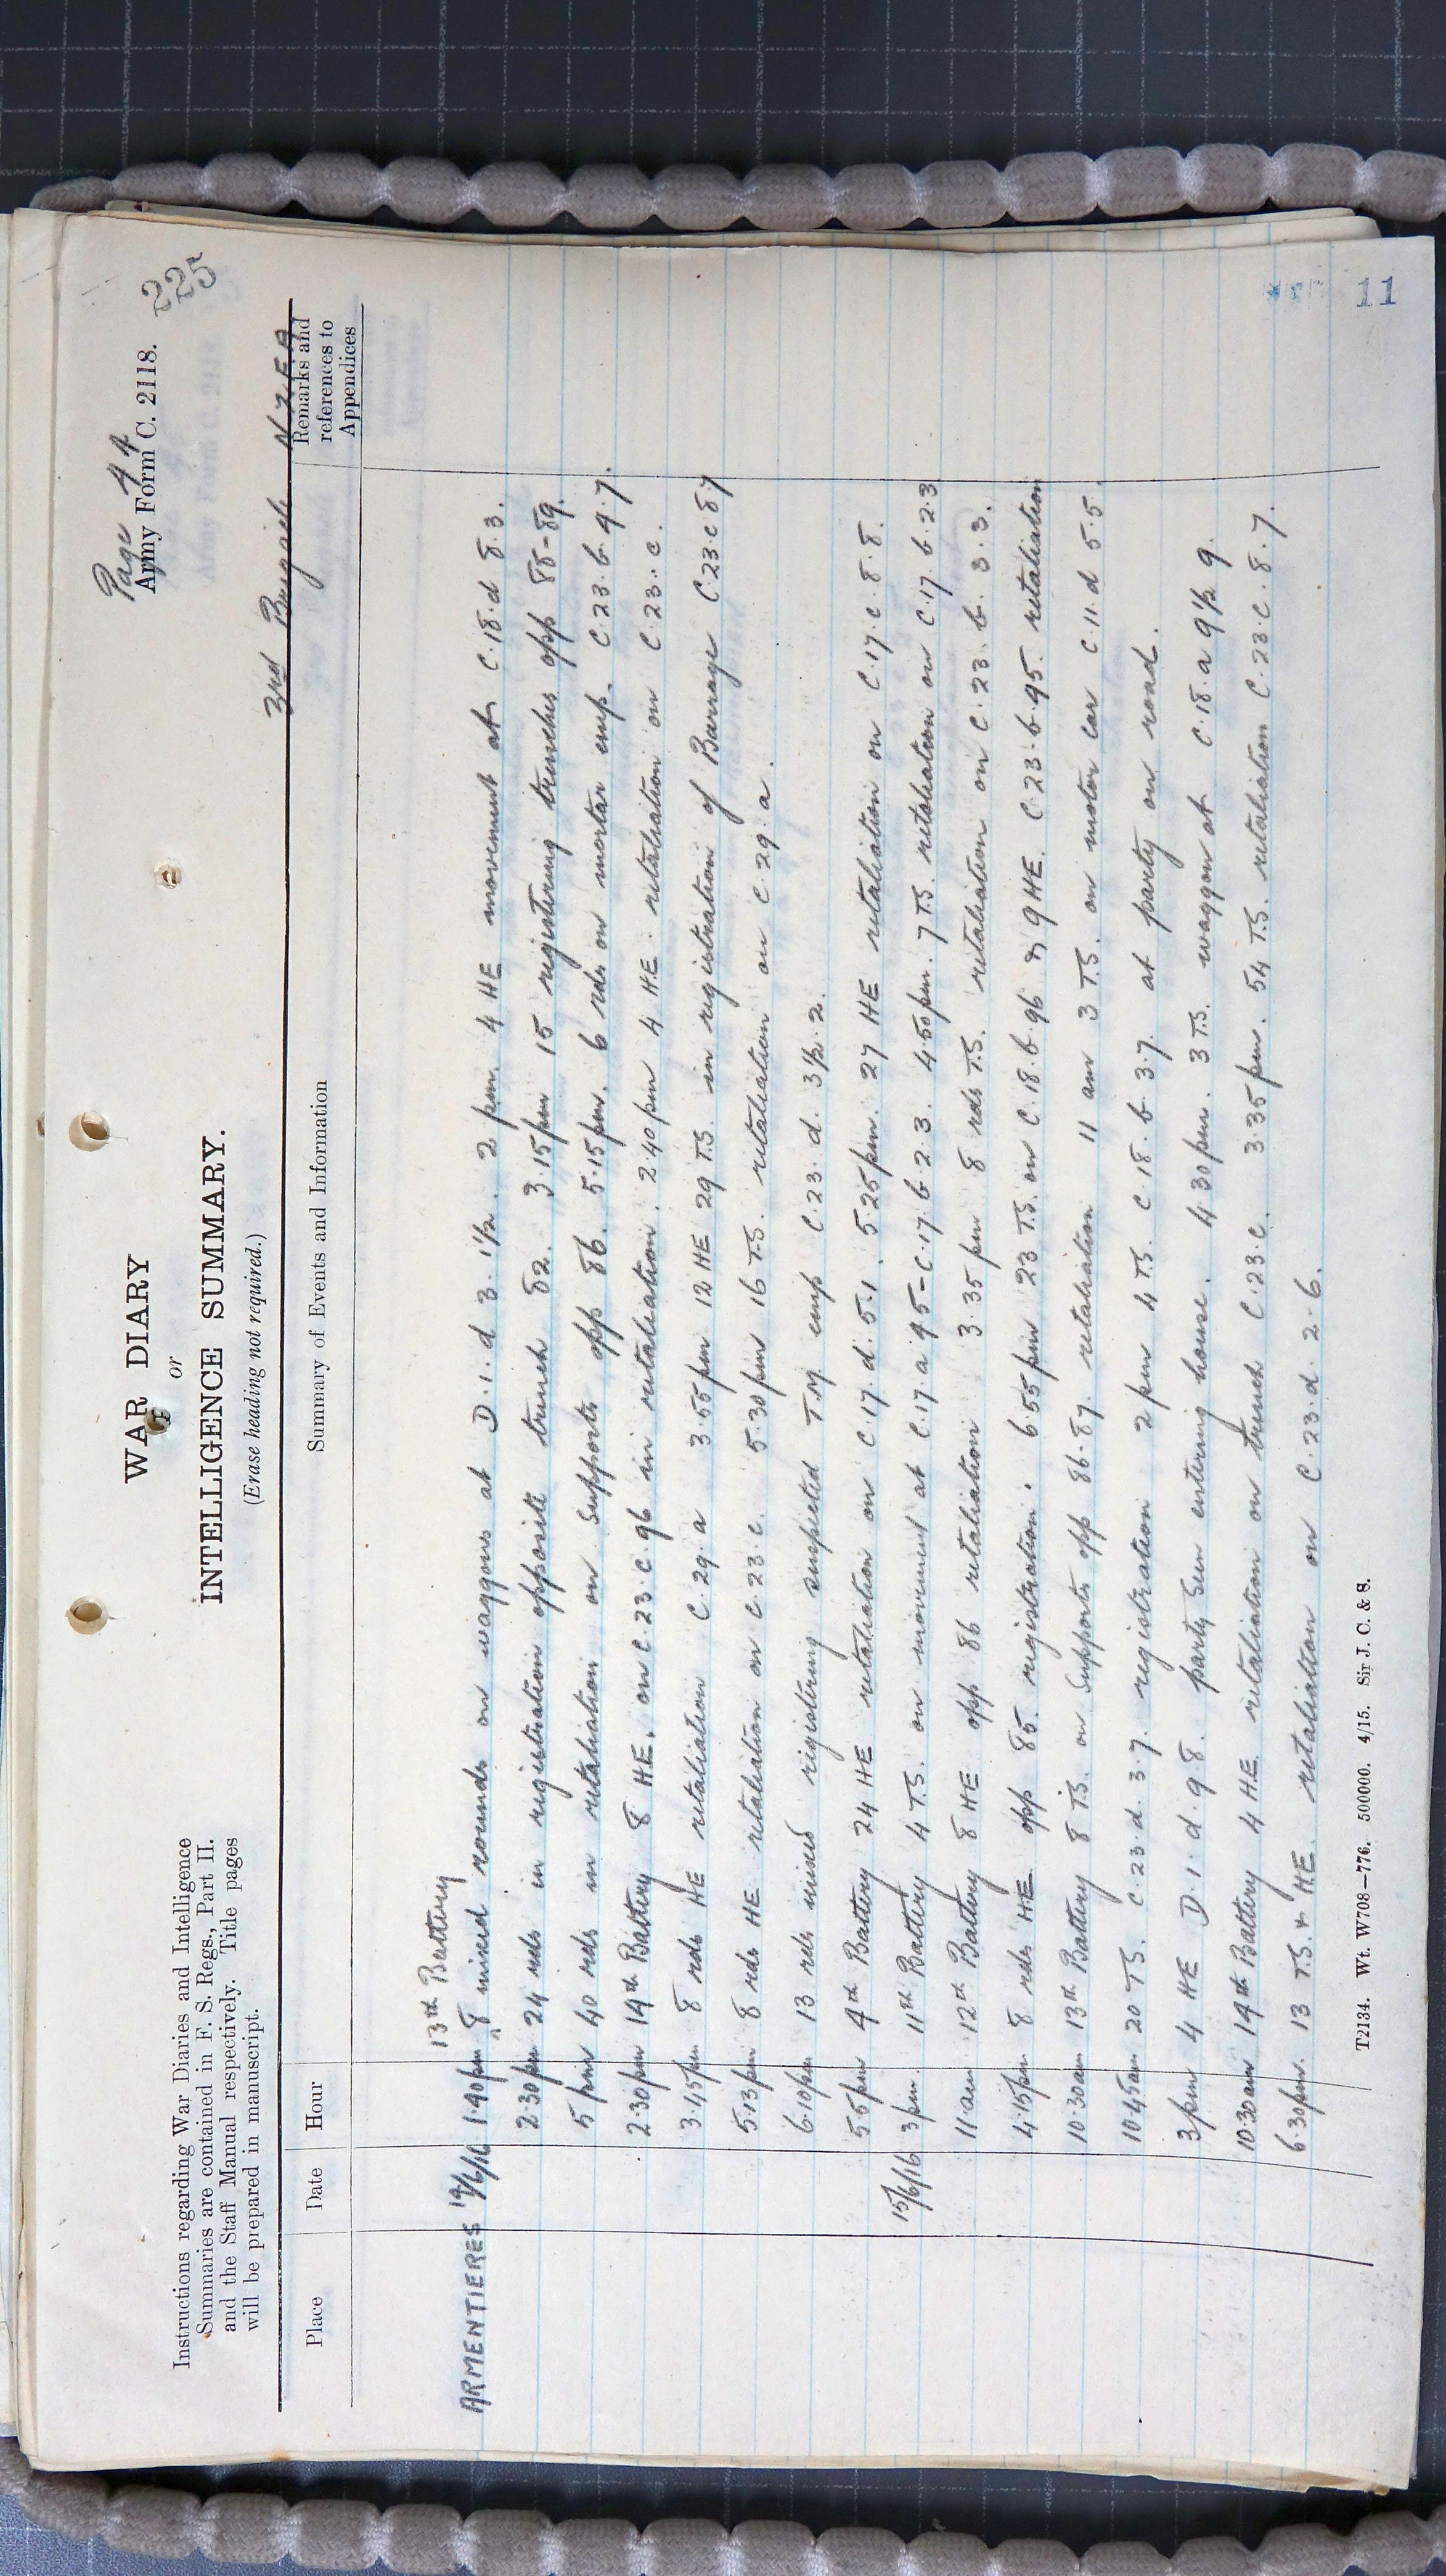 Page 44
Army Form C. 2118.
225
WAR DIARY
or
INTELLIGENCE SUMMARY.
(Erase heading not required.)
Instructions regarding War Diaries and Intelligence
Summaries are contained in F. S. Regs., Part II.
and the Staff Manual respectively. Title pages
will be prepared in manuscript.
3rd Brigade N.Z.F.A.
Place Date Hour Summary of Events and Information Remarks and references to Appendices
13th Battery
ARMENTIERES 14/6/16 1.40pm 8 mixed rounds on waggons at D.1.d 3.1½. 2 pm 4 HE movement at C.18.d 8.3.
2.30pm 24 rds in registration opposite trench 82. 3.15pm 15 registering trenches opp 88-89.
5 pm 40 rds in retaliation on Supports opp 86. 5.15pm. 6 rds on mortar emp. C.23.b.4.7.
2.30pm 14th Battery 8 HE. on C.23.c.96 in retaliation. 2.40pm 4 HE. retaliation on C.23.c.
3.45pm 8 rds HE retaliation C.29.a 3.55pm 12 HE 29 T.S. in registration of Barrage C.23.c 8.7
5.13pm 8 rds HE retaliation on C.23.c. 5.30pm 16 T.S. retaliation on C.29.a.
6.10pm 13 rds mixed registering suspected T.M. emp C.23.d. 3½.2.
5.5pm 4th Battery 24 HE retaliation on C.17.d.5.1. 5.25pm. 27 HE retaliation on C.17.c.8.8.
15/6/16 3pm. 11th Battery 4 T.S. on movement at C.17.a 45-C.17.b.23. 4.50pm. 7 T.S. retaliation on C.17.b.2.3
11am 12th Battery 8 HE opp 86 retaliation 3.35pm 8 rds T.S. retaliation on C.23.b.3.3.
4.15pm 8 rds HE opp 85. registration. 6.55pm 23 T.S. on C.18.b.96 & 9 HE. C.23.b.45. retaliation
10.30am 13th Battery 8 T.S. on Supports opp 86-87. retaliation 11 am 3 T.S. on motor car C.11.d 5.5.
10.45am 20 TS. C.23.d.3.7. registration 2pm 4 TS. C.18.b.3.7. at party on road.
3pm 4 HE D.1.d.9.8. party seen entering house. 4.30pm. 3 T.S. waggon at C.18.a 9½ 9.
10.30am 14th Battery 4 HE. retaliation on trench C.23.c. 3.35pm. 54 T.S. retaliation C.23.c.8.7.
6.30pm. 13 T.S. & HE. retaliation on C.23.d.2.6.
T2134. Wt. W708—776. 500000. 4/15. Sir J. C. & S.
11